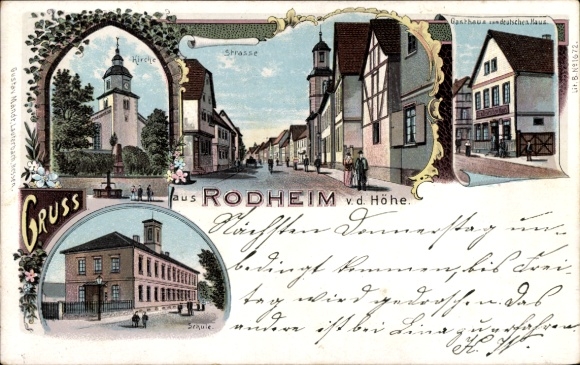 Kirche
Strasse
Gasthaus zum deutschen Haus
Lit. B. No. 1672.
Gruss
aus RODHEIM v. d. Höhe.
Schule.
Nächsten Donnerstag un-
bedingt kommen, bis Frei-
tag wird gedroschen. Das
andere ist bei Lina zu erfahren
K. W.